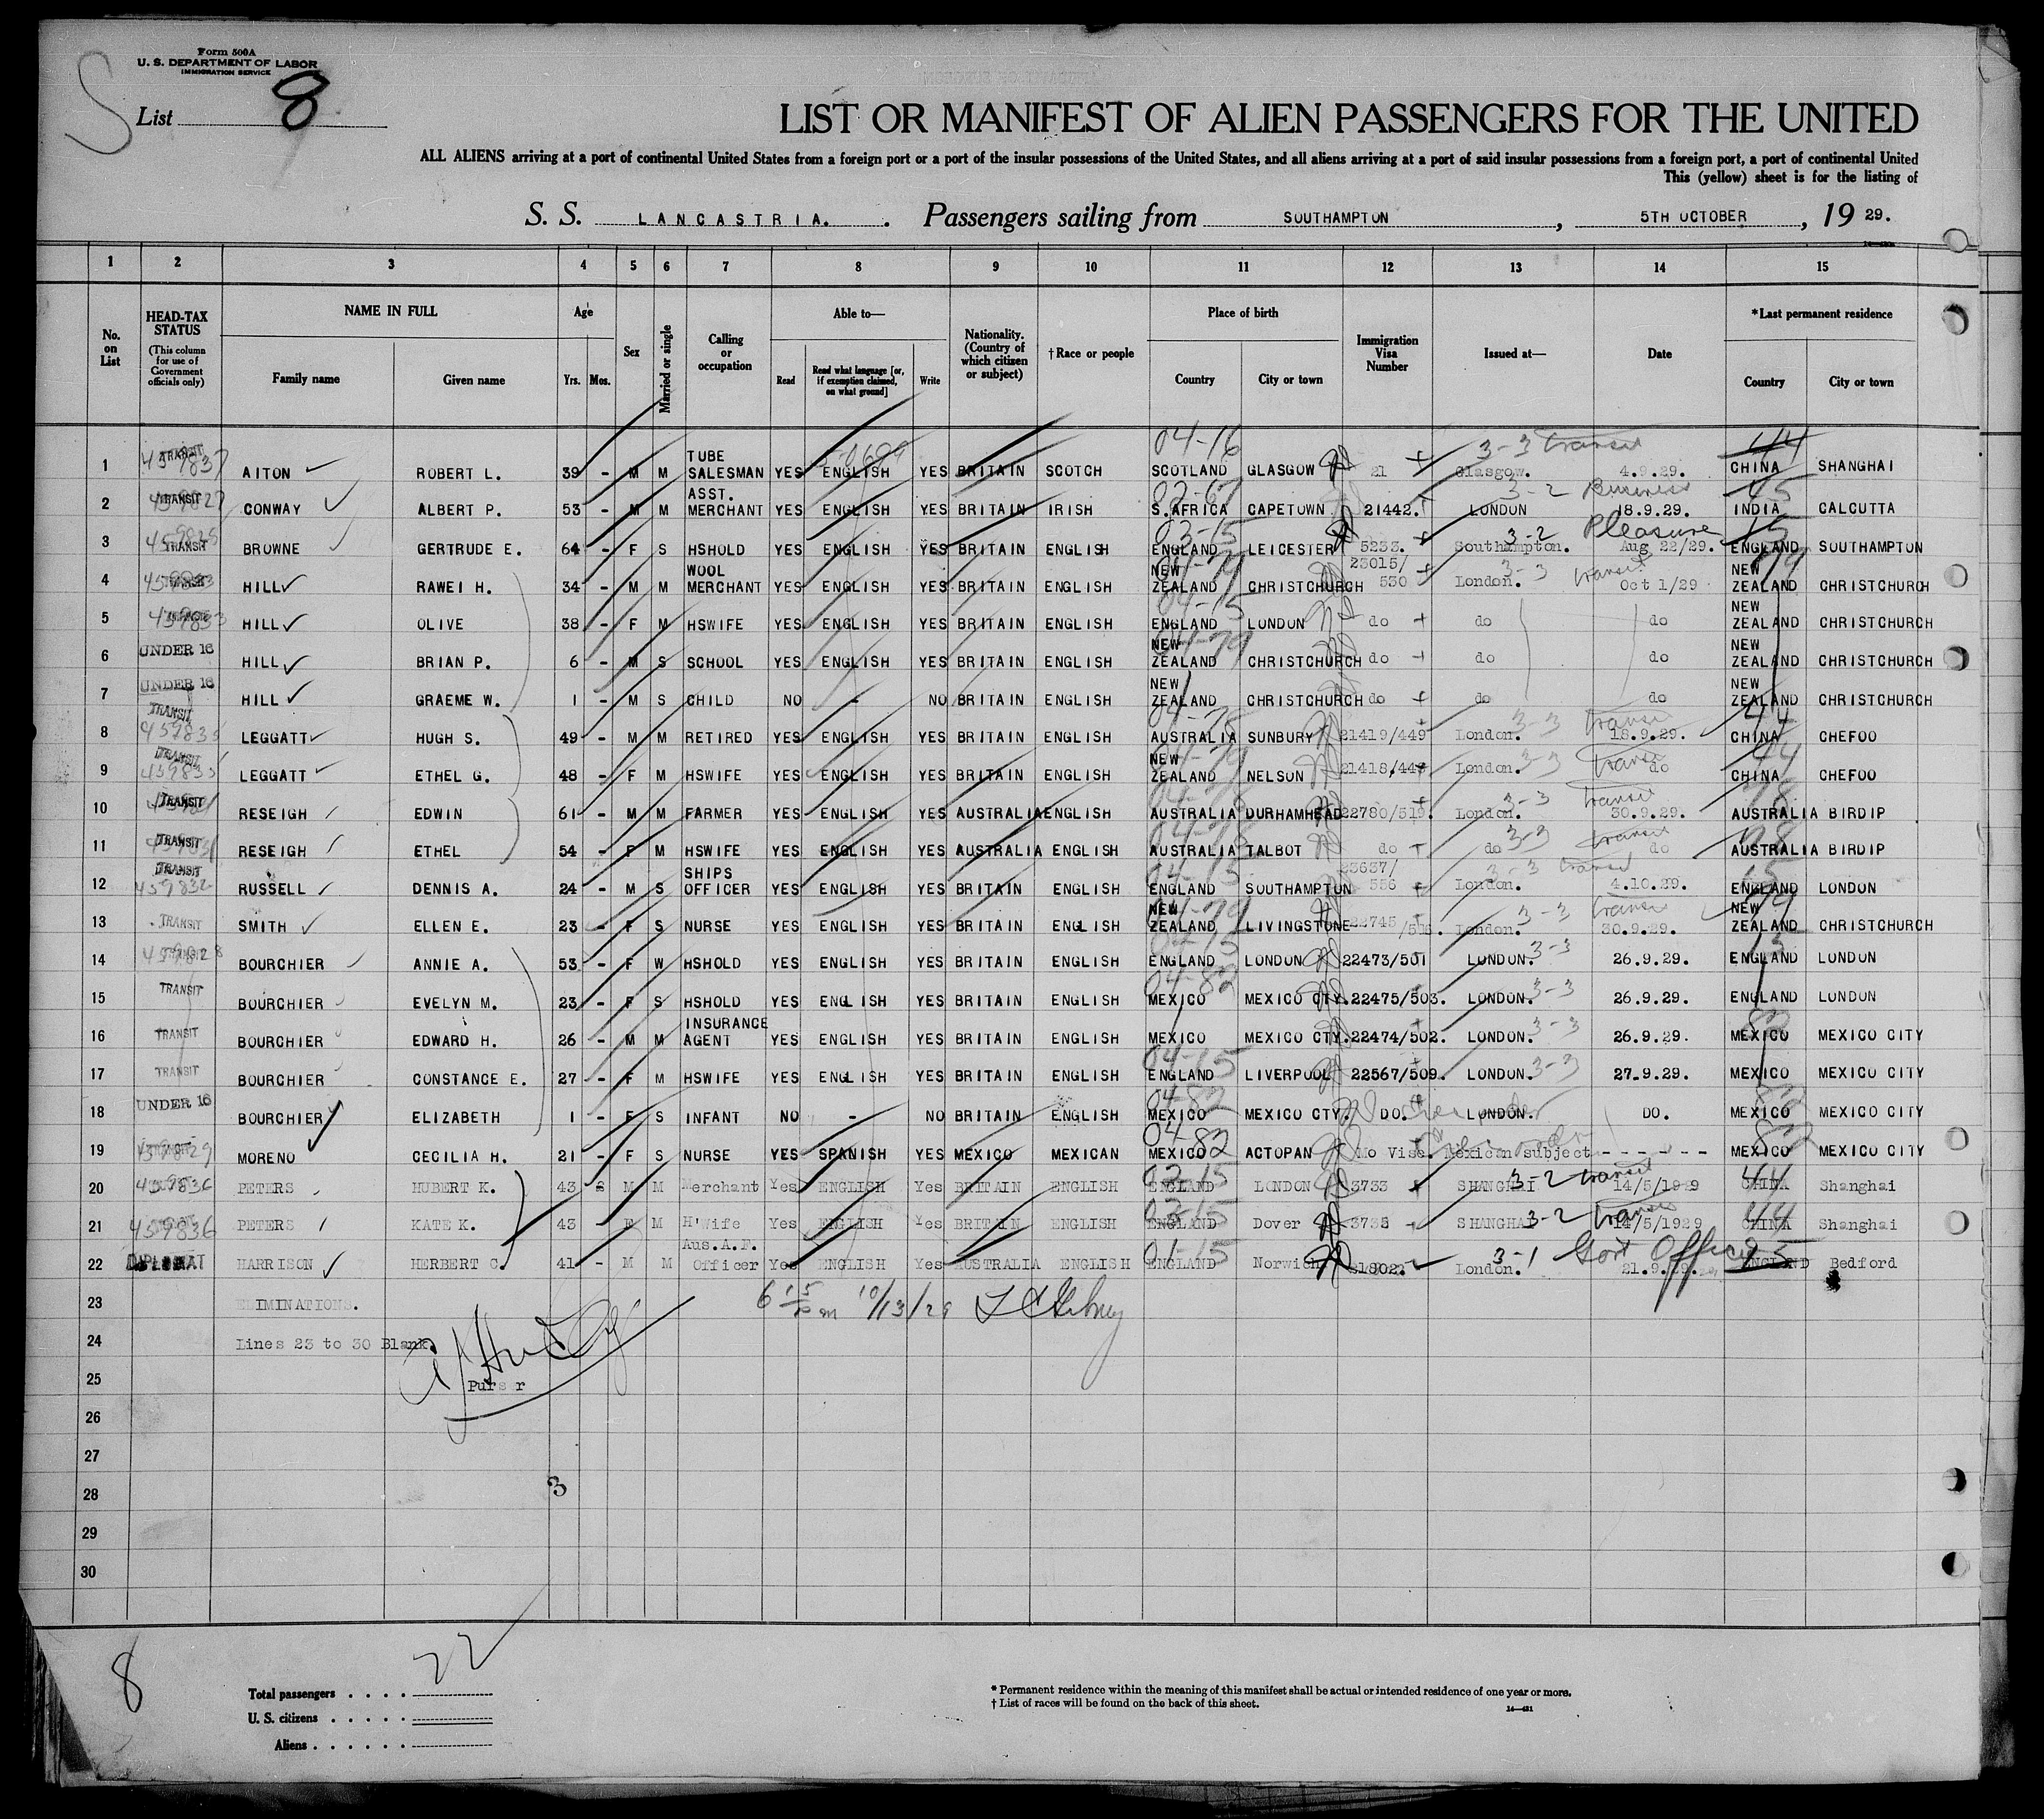 Form 500A
U. S. DEPARTMENT OF LABOR
IMMIGRATION SERVICE
S
List 8
LIST OR MANIFEST OF ALIEN PASSENGERS FOR THE UNITED
ALL ALIENS arriving at a port of continental United States from a foreign port or a port of the insular possessions of the United States, and all aliens arriving at a port of said insular possessions from a foreign port, a port of continental United
This (yellow) sheet is for the listing of
S. S. LANCASTRIA. Passengers sailing from SOUTHAMPTON, 5TH OCTOBER, 19 29.
1 2 3 4 5 6 7 8 9 10 11 12 13 14 15
No. on List HEAD-TAX STATUS (This column for use of Government officials only) NAME IN FULL Family name Given name Age Yrs. Mos. Sex Married or single Calling or occupation Able to— Read Read what language [or, if exemption claimed, on what ground] Write Nationality. (Country of which citizen or subject) †Race or people Place of birth Country City or town Immigration Visa Number Issued at— Date *Last permanent residence Country City or town
1 TRANSIT 459837 AITON ROBERT L. 39 - M M TUBE SALESMAN YES ENGLISH YES BRITAIN SCOTCH 04-16 SCOTLAND GLASGOW 21 Glasgow. 3-3 transit 4.9.29. 44 CHINA SHANGHAI
2 TRANSIT 459827 CONWAY ALBERT P. 53 - M M ASST. MERCHANT YES ENGLISH YES BRITAIN IRISH 02-67 S.AFRICA CAPETOWN 21442. LONDON 3-2 Business 18.9.29. 45 INDIA CALCUTTA
3 TRANSIT BROWNE GERTRUDE E. 64 - F S HSHOLD YES ENGLISH YES BRITAIN ENGLISH 03-15 ENGLAND LEICESTER 5233. Southampton. 3-2 Pleasure Aug 22/29. 15 ENGLAND SOUTHAMPTON
4 TRANSIT HILL RAWEI H. 34 - M M WOOL MERCHANT YES ENGLISH YES BRITAIN ENGLISH 04-79 NEW ZEALAND CHRISTCHURCH 23015/530 London. 3-3 transit Oct 1/29 79 NEW ZEALAND CHRISTCHURCH
5 459833 HILL OLIVE 38 - F M HSWIFE YES ENGLISH YES BRITAIN ENGLISH 04-15 ENGLAND LONDON do do do NEW ZEALAND CHRISTCHURCH
6 UNDER 16 HILL BRIAN P. 6 - M S SCHOOL YES ENGLISH YES BRITAIN ENGLISH 04-79 NEW ZEALAND CHRISTCHURCH do do do NEW ZEALAND CHRISTCHURCH
7 UNDER 16 HILL GRAEME W. 1 - M S CHILD NO - NO BRITAIN ENGLISH NEW ZEALAND CHRISTCHURCH do do do NEW ZEALAND CHRISTCHURCH
8 TRANSIT 459835 LEGGATT HUGH S. 49 - M M RETIRED YES ENGLISH YES BRITAIN ENGLISH 04-78 AUSTRALIA SUNBURY 21419/449 London. 3-3 transit 18.9.29. 44 CHINA CHEFOO
9 TRANSIT 459835 LEGGATT ETHEL G. 48 - F M HSWIFE YES ENGLISH YES BRITAIN ENGLISH 04-79 NEW ZEALAND NELSON 21418/448 London. 3-3 transit do 44 CHINA CHEFOO
10 TRANSIT RESEIGH EDWIN 61 - M M FARMER YES ENGLISH YES AUSTRALIA ENGLISH 04-78 AUSTRALIA DURHAMHEAD 22780/519. London. 3-3 transit 30.9.29. 78 AUSTRALIA BIRDIP
11 TRANSIT 459831 RESEIGH ETHEL 54 - F M HSWIFE YES ENGLISH YES AUSTRALIA ENGLISH 04-78 AUSTRALIA TALBOT do do 3-3 transit do 78 AUSTRALIA BIRDIP
12 TRANSIT 459832 RUSSELL DENNIS A. 24 - M S SHIPS OFFICER YES ENGLISH YES BRITAIN ENGLISH 04-15 ENGLAND SOUTHAMPTON 23637/556 London. 3-3 transit 4.10.29. 15 ENGLAND LONDON
13 TRANSIT SMITH ELLEN E. 23 - F S NURSE YES ENGLISH YES BRITAIN ENGLISH 04-79 NEW ZEALAND LIVINGSTONE 22745 London. 3-3 transit 30.9.29. 79 NEW ZEALAND CHRISTCHURCH
14 TRANSIT 459828 BOURCHIER ANNIE A. 53 - F W HSHOLD YES ENGLISH YES BRITAIN ENGLISH 04-15 ENGLAND LONDON 22473/501 LONDON. 3-3 26.9.29. 15 ENGLAND LONDON
15 TRANSIT BOURCHIER EVELYN M. 23 - F S HSHOLD YES ENGLISH YES BRITAIN ENGLISH 04-82 MEXICO MEXICO CTY. 22475/503. LONDON. 3-3 26.9.29. ENGLAND LONDON
16 TRANSIT BOURCHIER EDWARD H. 26 - M M INSURANCE AGENT YES ENGLISH YES BRITAIN ENGLISH MEXICO MEXICO CTY. 22474/502. LONDON. 3-3 26.9.29. 82 MEXICO MEXICO CITY
17 TRANSIT BOURCHIER CONSTANCE E. 27 - F M HSWIFE YES ENGLISH YES BRITAIN ENGLISH 04-15 ENGLAND LIVERPOOL 22567/509. LONDON. 3-3 27.9.29. MEXICO MEXICO CITY
18 UNDER 16 BOURCHIER ELIZABETH 1 - F S INFANT NO - NO BRITAIN ENGLISH 04-82 MEXICO MEXICO CTY. DO. LONDON. DO. 82 MEXICO MEXICO CITY
19 459829 MORENO CECILIA H. 21 - F S NURSE YES SPANISH YES MEXICO MEXICAN 04-82 MEXICO ACTOPAN No Vise. Mexican subject - - - - - - 82 MEXICO MEXICO CITY
20 459836 PETERS HUBERT K. 43 M M Merchant Yes ENGLISH Yes BRITAIN ENGLISH 02-15 ENGLAND LONDON 3733 SHANGHAI 3-2 transit 14/5/1929 44 CHINA Shanghai
21 459836 PETERS KATE K. 43 F M H'Wife Yes ENGLISH Yes BRITAIN ENGLISH 03-15 ENGLAND Dover SHANGHAI 3-2 transit 14/5/1929 44 CHINA Shanghai
22 DIPLOMAT HARRISON HERBERT C. 41 - M M Aus.A.F. Officer Yes ENGLISH Yes AUSTRALIA ENGLISH 01-15 ENGLAND Norwich London. 3-1 Govt Officer 21.9.29. 15 ENGLAND Bedford
23 ELIMINATIONS. 6 15 pm 10/13/29
24 Lines 23 to 30 Blank.
25 Purser
26
27
28 3
29
30
8
Total passengers . . . . 22
U. S. citizens . . . . .
Aliens . . . . . .
* Permanent residence within the meaning of this manifest shall be actual or intended residence of one year or more.
† List of races will be found on the back of this sheet.
14—431